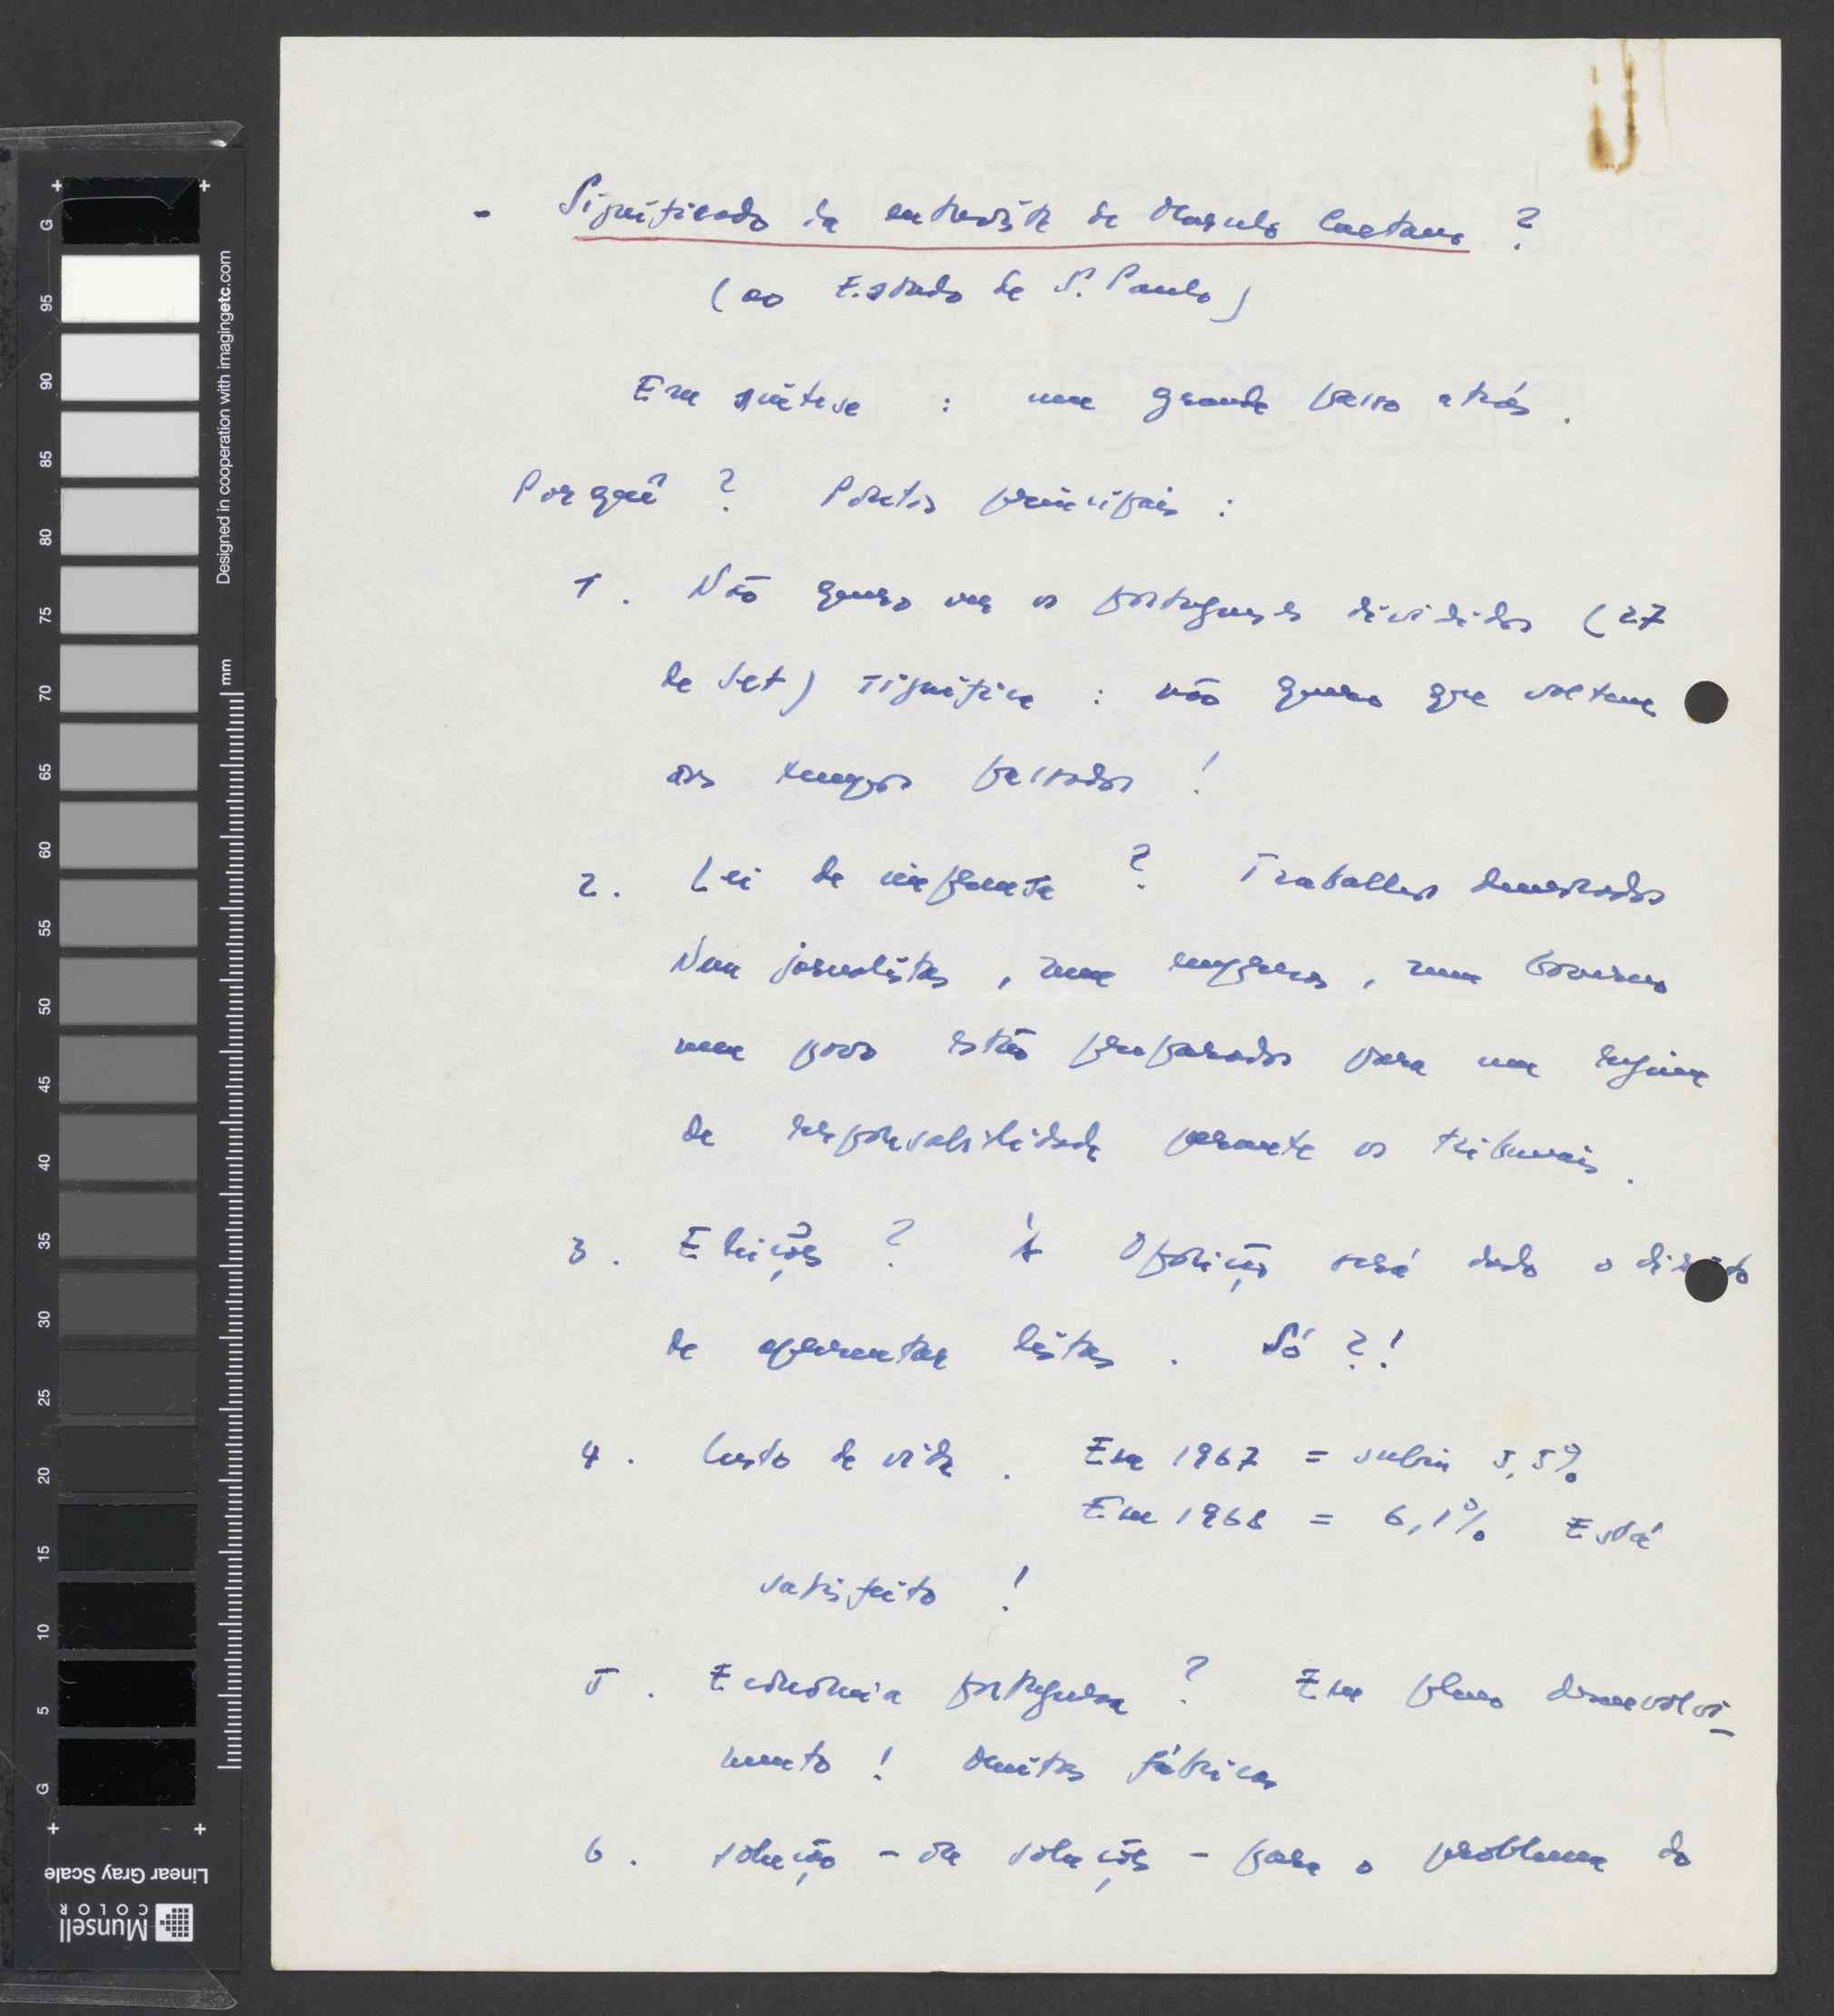 - Significado da entrevista de Marcelo Caetano ?
(ao Estado de S. Paulo)
Em síntese : um grande passo atrás.
Porquê ? Pontos principais :
1. Não quero ver os portugueses divididos (27
de Set) significa : não quero que voltem
aos tempos passados !
2. Lei de imprensa ? Trabalhos demorados
Nem jornalistas, nem empresas, nem Governo
nem povo estão preparados para um regime
de responsabilidade perante os tribunais.
3. Eleições ? À Oposição será dado o direito
de apresentar listas. Só ?!
4. Custo de vida. Em 1967 = subiu 5,5%
Em 1968 = 6,1% Está
satisfeito !
5. Economia portuguesa ? Em pleno desenvolvi-
mento ! Muitas fábricas
6. solução - ou soluções - para o problema do
G 95 90 85 80 75 70 65 60 55 50 45 40 35 30 25 20 15 10 5 G
mm
Designed in cooperation with imagingetc.com
Linear Gray Scale
Munsell
COLOR